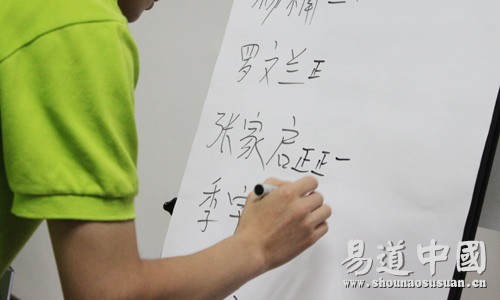 罗文兰正
张家启正正一
季
易道中國
www.shounaosuasuan.cn